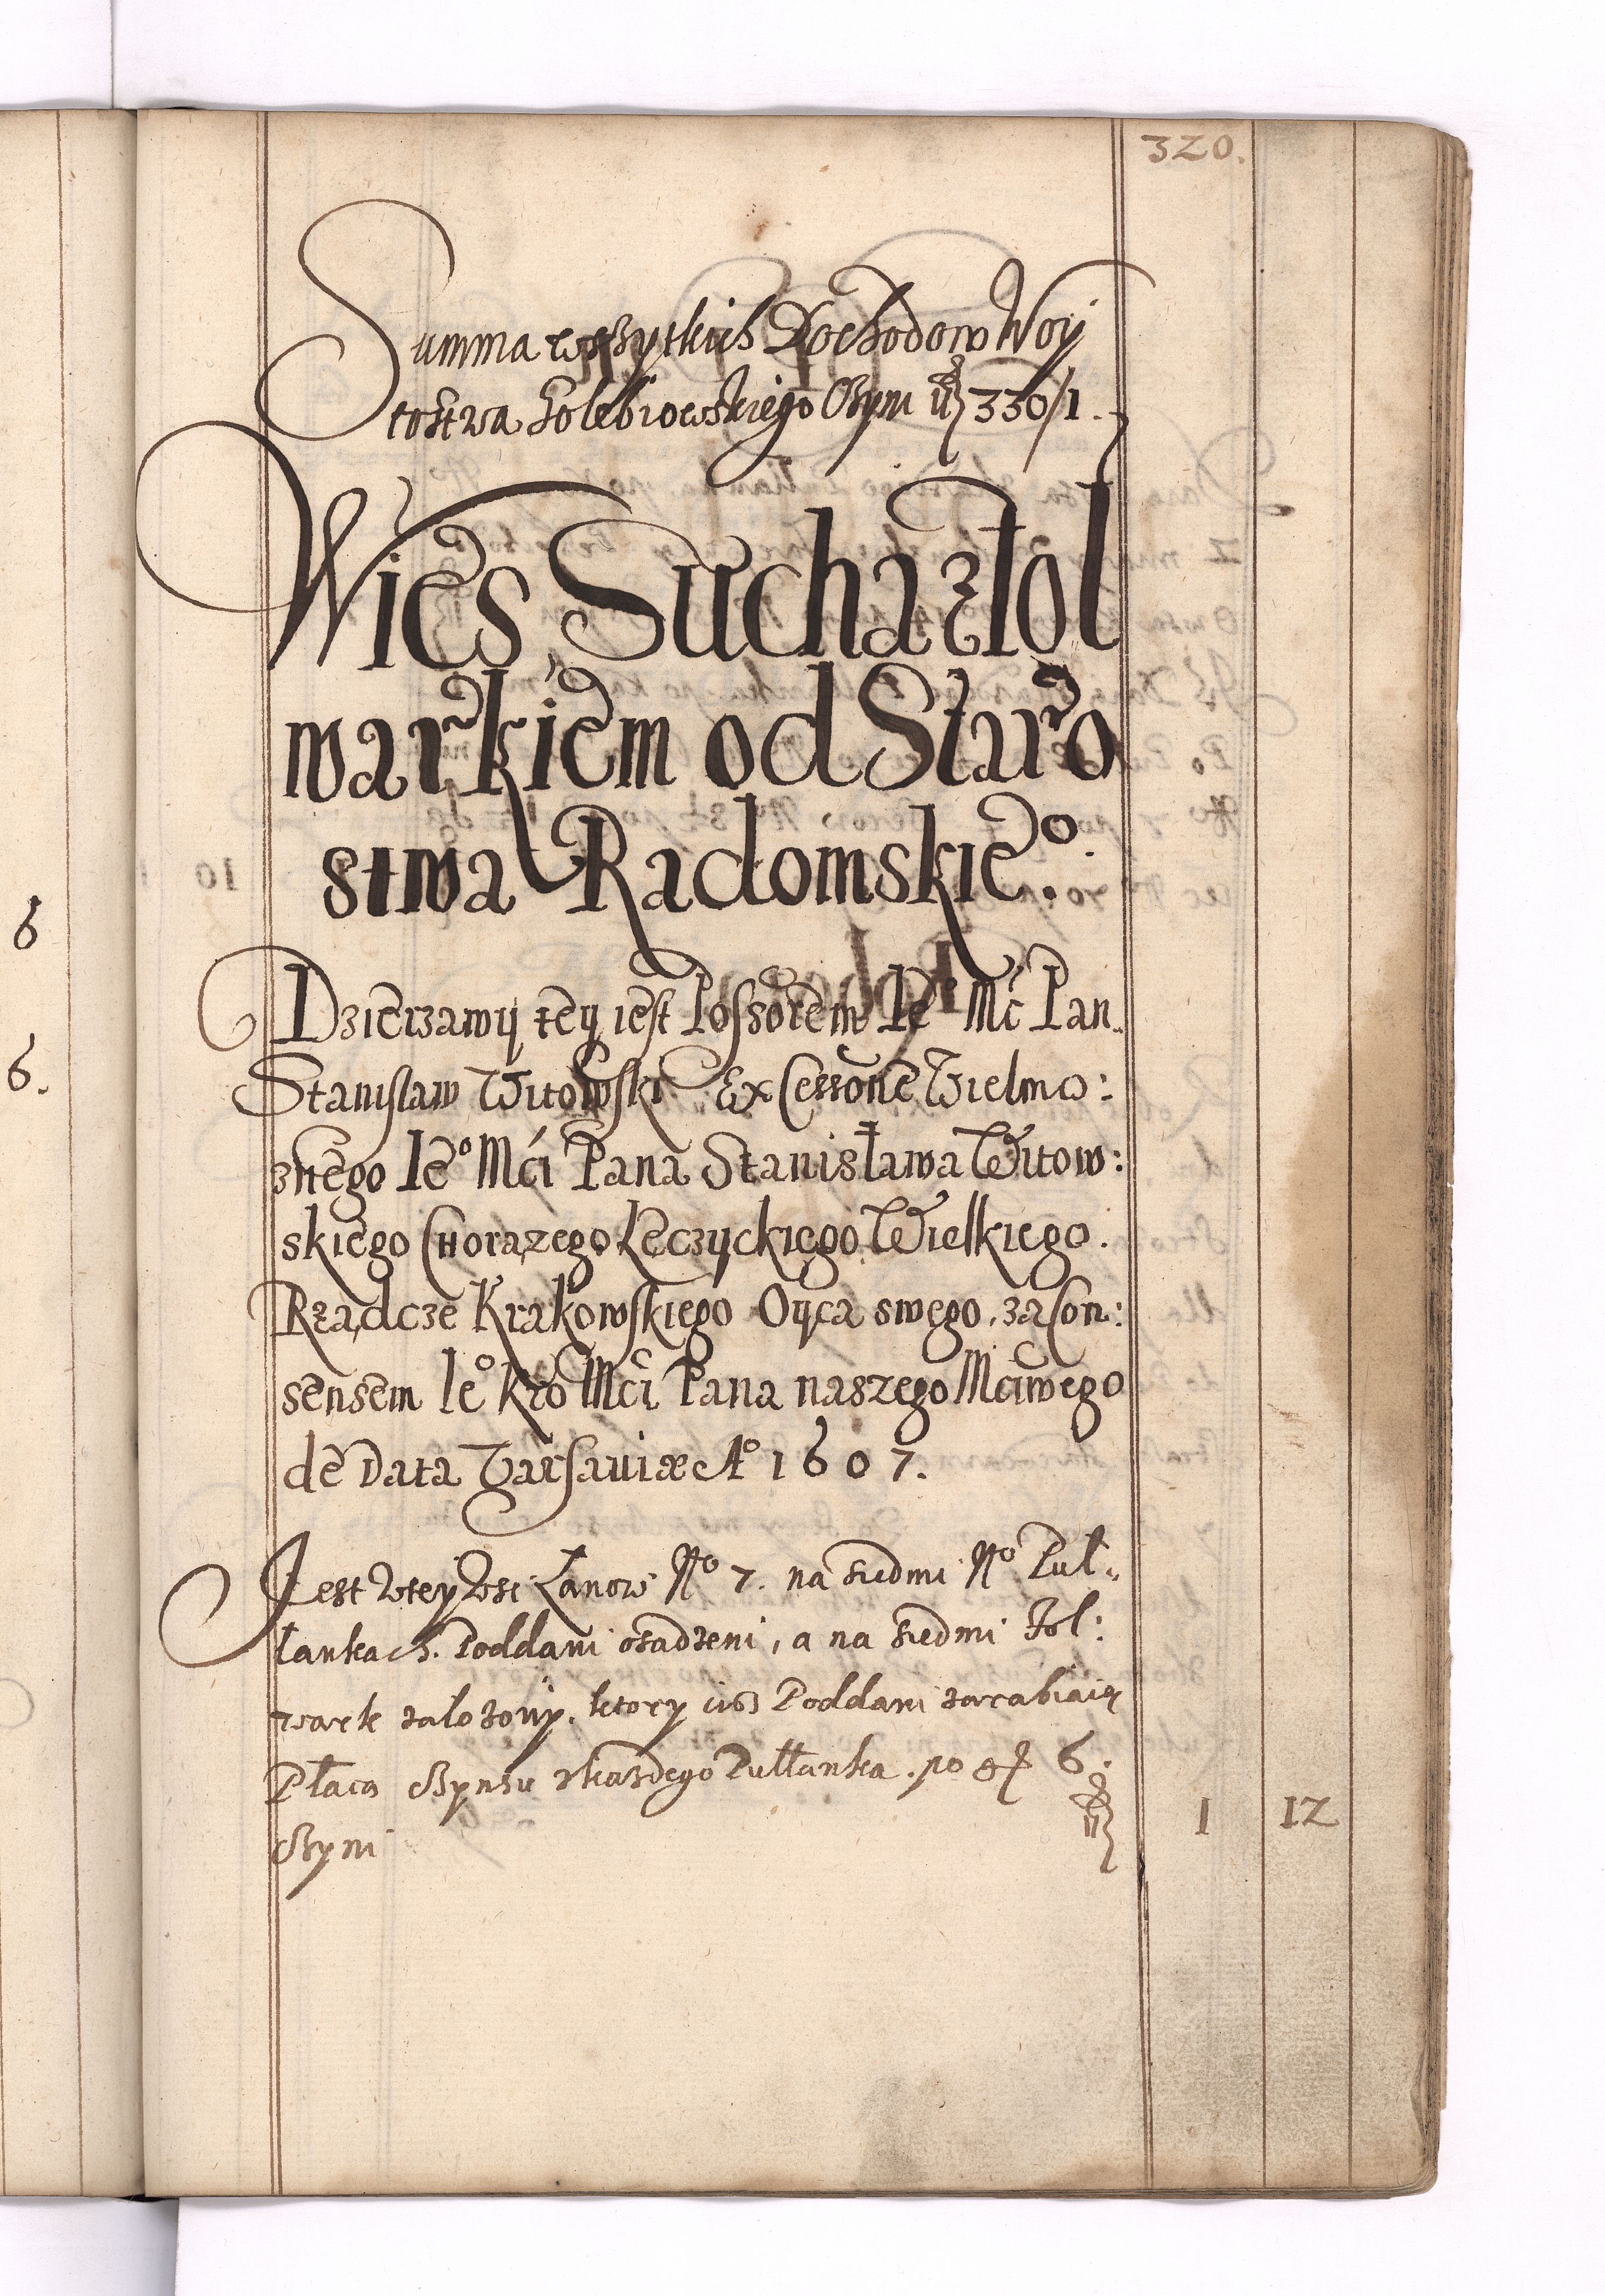 320.
Summa wszytkich Dochodow Woy
tostwa Golebiowskiego Czyni 330/1.
Wies Sucha z Fol
warkiem od Staro
stwa Radomskieº.
Dzierzawy tey iest Possorem Ieº Mć Pan
Stanisław Witowski Ex Cessone Wielmo:
znego Ieº Mći Pana Stanisława Witow:
skiego Chorązego Łęczyckiego Wielkiego.
Rządcze Krakowskiego Oyca swego, za Con:
sensem Ieº Kro Mći Pana naszego Mciwego
de Data Varsaviæ Aº 1607.
Jest w tey wsi Łanow Nº 7. na siedmi Nº Puł„
łankach. Poddani osadzeni, a na siedmi Fol:
wark załozony. ktory ciż Poddani zarabiaią
Płacą Czynszu z kazdego Pułłanka. po gr 6.
Czyni 1 12
6
6.